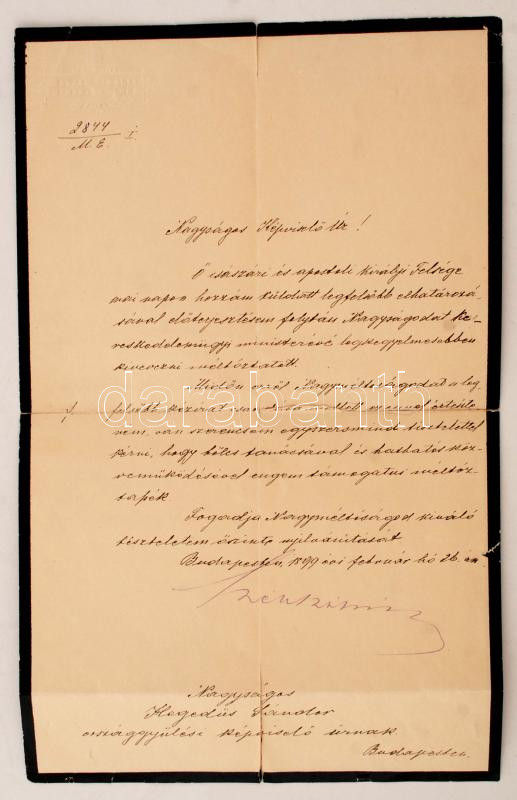 2844
M. E. I.
Nagyságos Képviselő Úr!
Ő császári és apostoli királyi Felsége
mai napon hozzám küldött legfelsőbb elhatározá-
sával előterjesztésem folytán Nagyságodat ke-
reskedelemügyi ministerévé legkegyelmesebben
kinevezni méltóztatott.
Midőn erről Nagyméltóságodat a leg-
felsőbb kézirat mellett ezennel értesíte-
ném, van szerencsém egyszersmind tisztelettel
kérni, hogy bölcs tanácsával és hathatós köz-
reműködésével engem támogatni méltóz-
tassék.
Fogadja Nagyméltóságod kiváló
tiszteletem őszinte nyilvánítását.
Budapesten, 1899 évi február hó 26-án
Széll Kálmán
Nagyságos
Hegedüs Sándor
országgyűlési képviselő úrnak
Budapesten.
darabanth